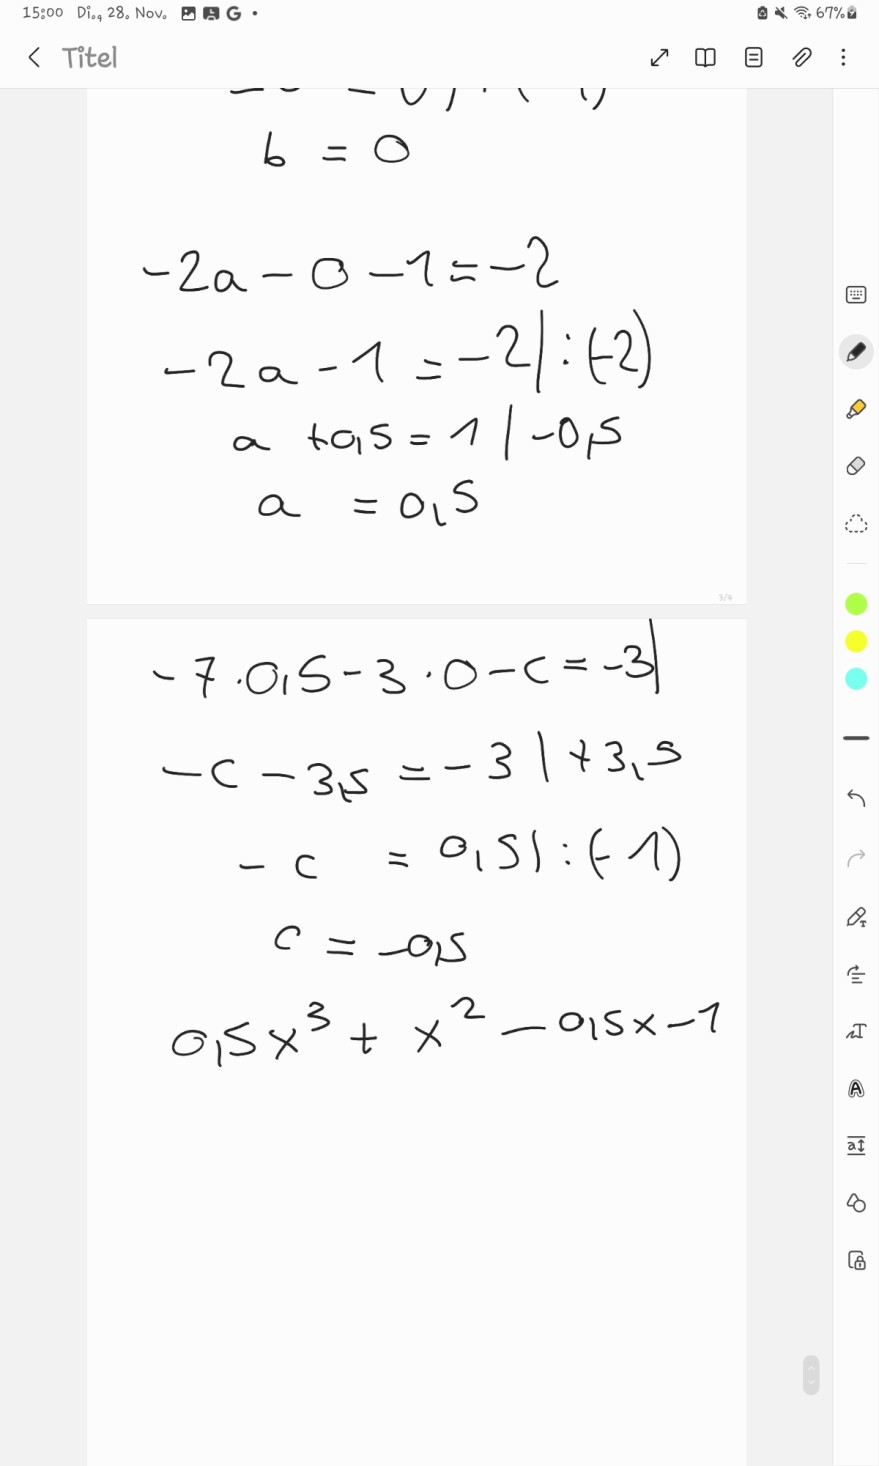 15:00 Di., 28. Nov. G • 67%
Titel
b = 0
-2a - 0 - 1 = -2
-2a - 1 = -2 | : (-2)
a +0,5 = 1 | -0,5
a = 0,5
3/4
-7 · 0,5 - 3 · 0 - c = -3 |
-c - 3,5 = -3 | +3,5
-c = 0,5 | : (-1)
c = -0,5
0,5x³ + x² - 0,5x - 1